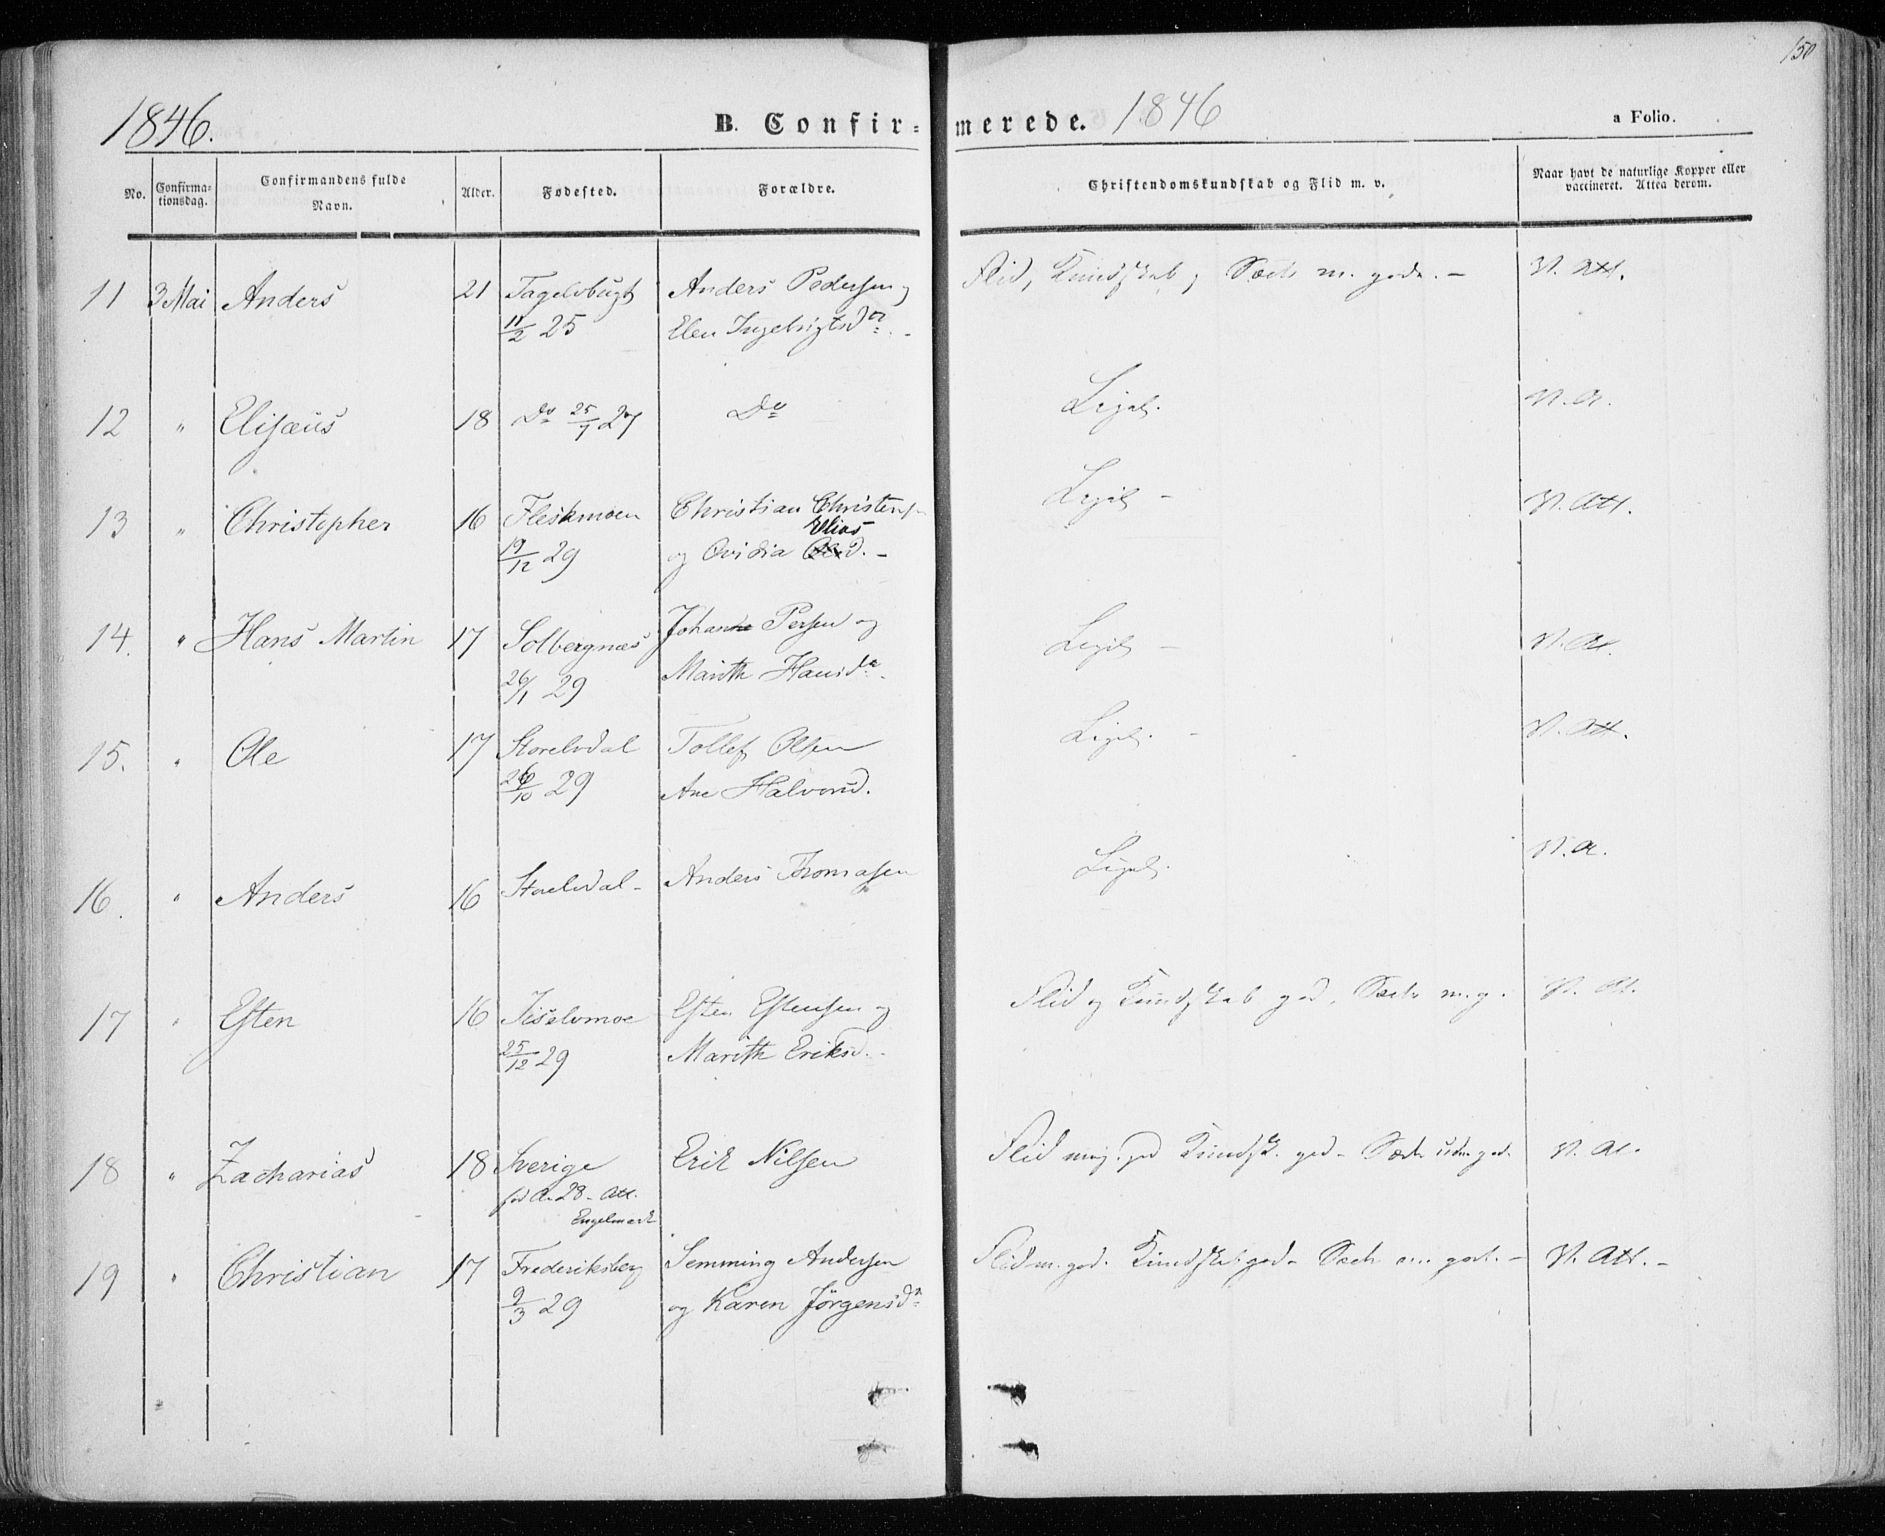 150
1846. B. Confir- merede. 1846 a Folio.
No. Confirma-tionsdag. Confirmandens fulde Navn. Alder. Fødested. Forældre. Christendomskundskab og Flid m. v. Naar havt de naturlige Kopper eller vaccineret. Attest derom.
11 3 Mai Anders 21 Tagelvbugt Anders Pedersen og Flid, Kundskab og Sæder m. gode. - V. Att.
11/2 25 Elen Ingebrigtsdr. -
12 " Elisæus 18 Do 25/7 27 Do Ligel. V. A.
13 " Christopher 16 Fleskmoen Christian Christens. Ligel. - V. Att.
Elias
19/12 29 og Ovidia d. -
14. " Hans Martin 17 Solbergnæs Johan Persen og Ligel. - V. Att.
26/1 29 Marith Hansdr.
15. " Ole 17 Storelvdal Tollef Olsen Ligel. - V. Att.
26/10 29 Ane Halvorsd.
16. " Anders 16 Storelvdal - Anders Thomasen Ligel. V. A.
17 " Esten 16 Iselvmoe Esten Estensen og Flid og Kundskab god, Sæder m. g. V. Att.
25/12 29 Marith Eriksd. -
18 " Zacharias 18 Sverige Erik Nilsen Flid meg. god Kundsk. god - Sæder udm. god. V. At.
fød A. 28 - Att.
Engelmark
19 " Christian 17 Frederiksberg Semming Andersen Flid m. god. Kundskab god - Sæder m. gode. - V. Att. -
9/3 29 og Karen Jørgensdr.